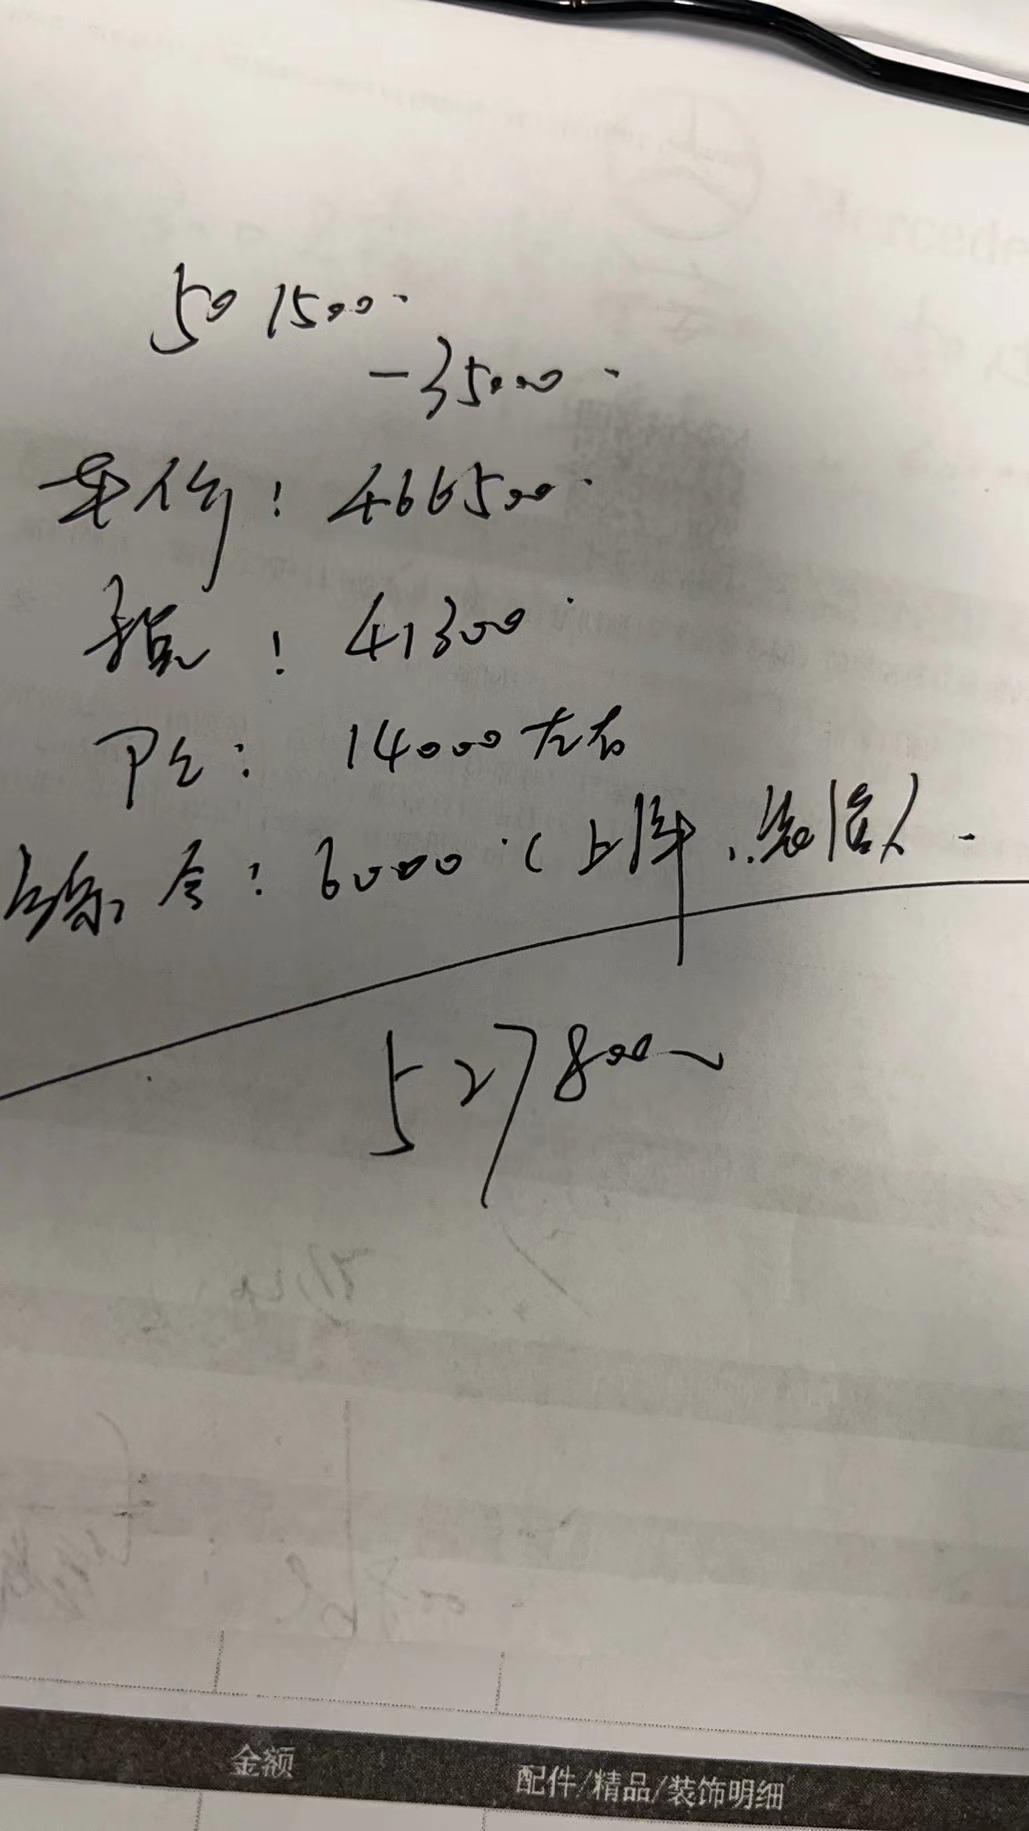 501500.
-35000.
车价: 466500.
税: 41300.
保险: 14000左右
综合: 6000.(上牌
527800
金额
配件/精品/装饰明细